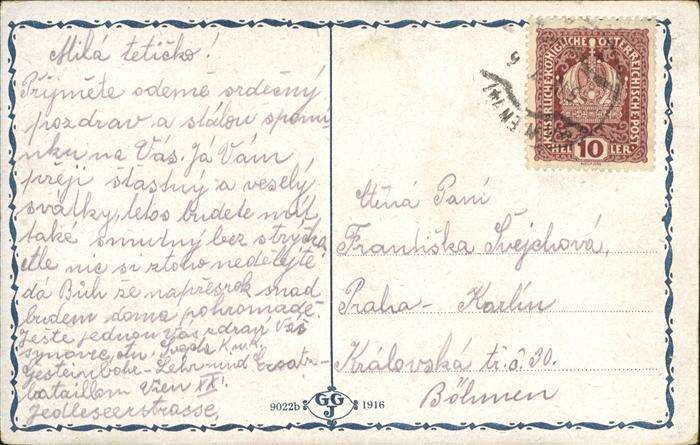 Milá tetičko!
Přijměte odemě srdečný
pozdrav a stálou spomí-
nku na Vás. Já Vám
přeji šťastný a veselý
svátky, letos budete mít
také smutný bez strýčka,
Ale nic si ztoho nedělejte
dá Bůh že napřesrok snad
budem doma pohromadě.
Ještě jednou Vás zdraví Váš
synovec
Lehr und Ersatz-
bataillon Wien XXI.
Jedleseerstrasse.
KAISERLICHE KÖNIGLICHE ÖSTERREICHISCHE POST
HELLER
10
WIEN
Ctěná Paní
Františka Švejchová,
Praha - Karlín
Královská tř. č 30.
Böhmen
9022b GGJ 1916